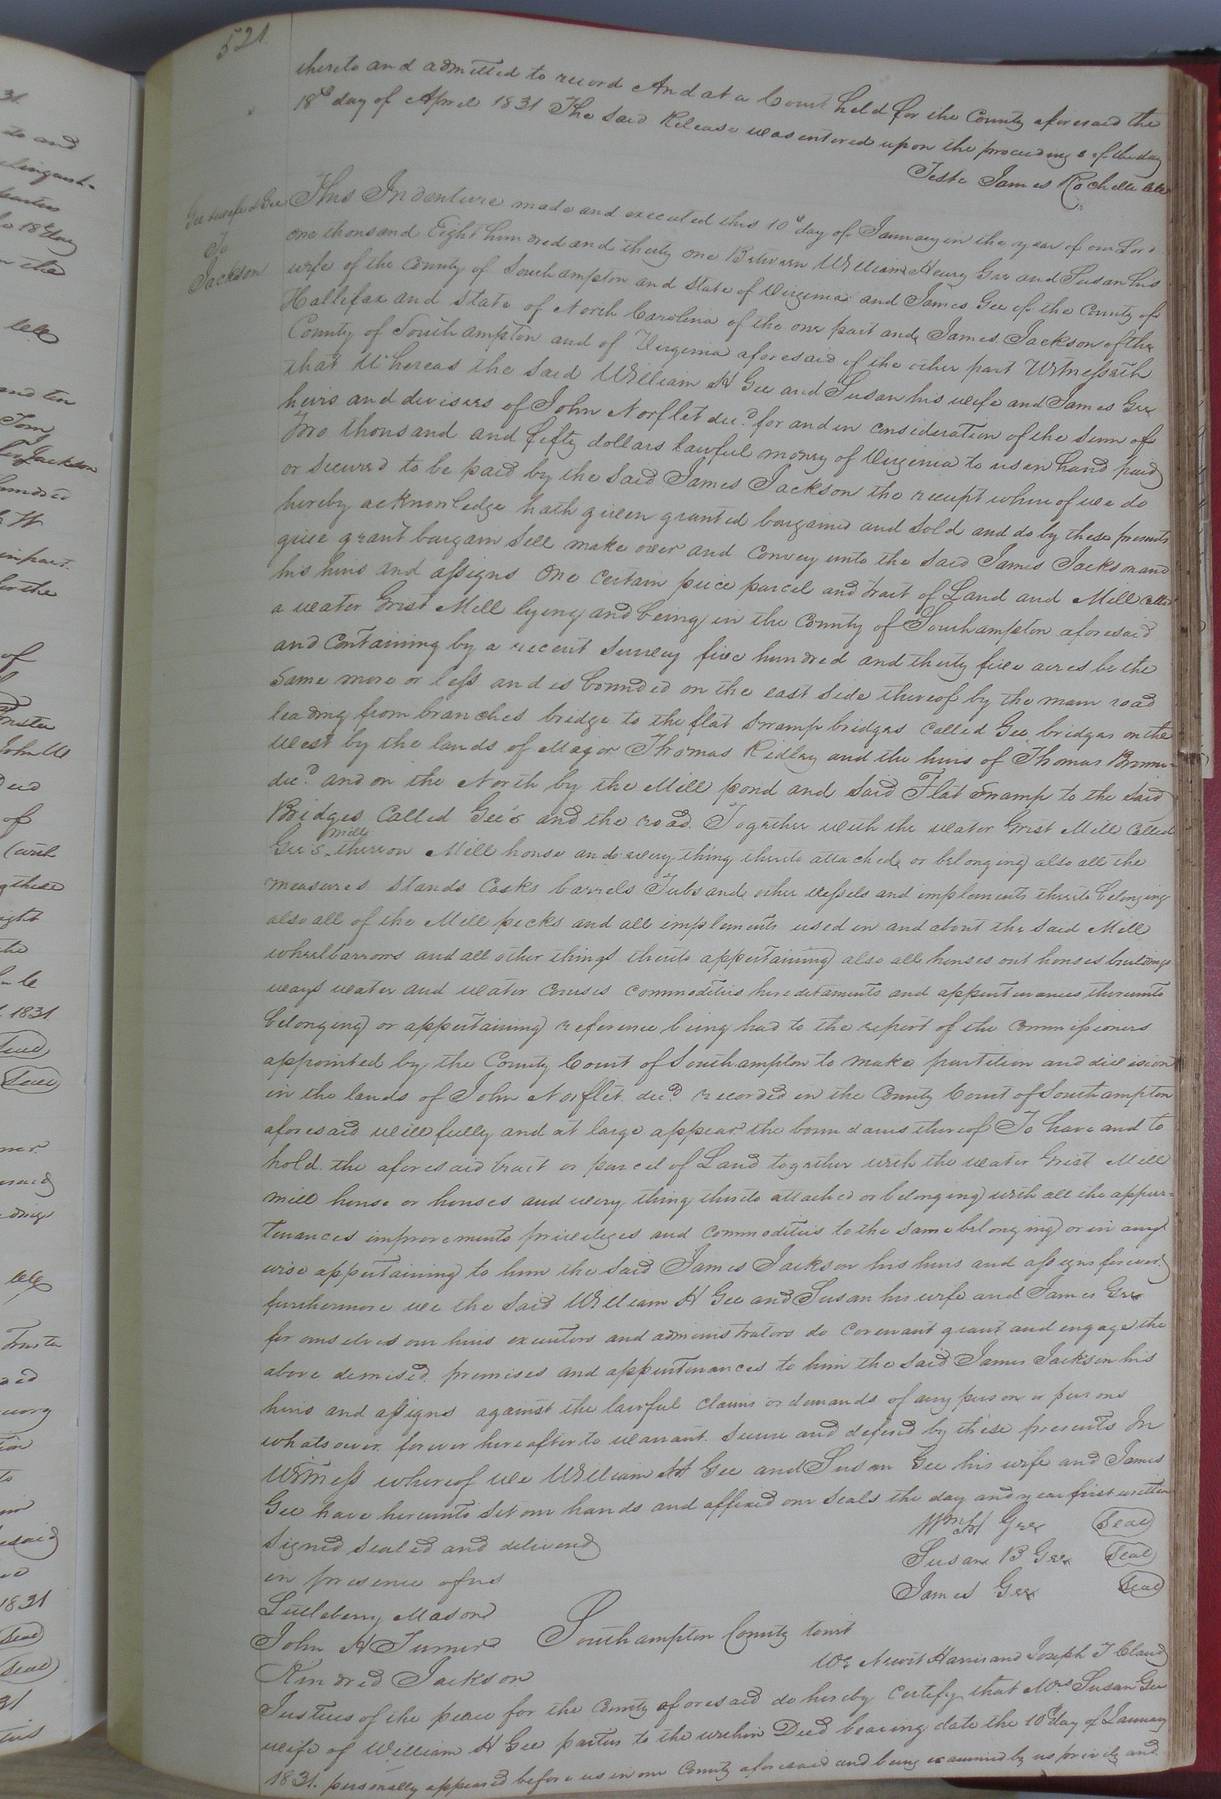 521
thereto and admitted to record And at a Court held for the County aforesaid the
18th day of April 1831 The said Release was entered upon the proceedings of the day
Teste James Rochelle Clk
Gee & wife & Gee
To
Jackson
This Indenture made and executed this 10th day of January in the year of our Lord
one thousand Eight hundred and thirty one Between William Henry Gee and Susan his
wife of the County of Southampton and State of Virginia and James Gee of the County of
Hallifax and State of North Carolina of the one part and James Jackson of the
County of Southampton and of Virginia aforesaid of the other part Witnesseth
that Whereas the said William H Gee and Susan his wife and James Gee
heirs and devisees of John Norflet decd. for and in consideration of the sum of
Two thousand and fifty dollars lawful money of Virginia to us in hand paid
or secured to be paid by the said James Jackson the receipt whereof we do
hereby acknowledge hath given granted bargained and sold and do by these presents
give grant bargain sell make over and convey unto the said James Jackson and
his heirs and assigns One certain peice parcel and tract of Land and Mill called
a water Grist Mill lying and being in the County of Southampton aforesaid
and containing by a recent survey five hundred and thirty five acres be the
same more or less and is bounded on the east side thereof by the main road
leading from branches bridge to the flat swamp bridges called Gee bridges on the
west by the lands of Major Thomas Ridley and the heirs of Thomas Brown
decd. and on the North by the Mill pond and said Flat Swamp to the said
Bridges called Gee's and the road. Together with the water Grist Mill called
Gee's mill thereon Mill house and every thing thereto attached or belonging also all the
measures stands Casks barrels Tubs and other vessels and implements thereto belonging
also all of the Mill pecks and all implements used in and about the said Mill
wheelbarrows and all other things thereto appertaining also all houses out houses buildings
ways water and water courses commodities hereditaments and appurtenances thereunto
belonging or appertaining reference being had to the report of the Commissioners
appointed by the County Court of Southampton to make partition and division
in the lands of John Norflet decd. recorded in the County Court of Southampton
aforesaid will fully and at large appear the boundaries thereof To have and to
hold the aforesaid tract or parcel of Land together with the water Grist Mill
mill house or houses and every thing thereto attached or belonging with all the appur-
tenances improvements priviliges and commodities to the same belonging or in any
wise appertaining to him the said James Jackson his heirs and assigns forever
furthermore we the said William H Gee and Susan his wife and James Gee
for ourselves our heirs executors and administrators do covenant grant and engage the
above demised premises and appurtenances to him the said James Jackson his
heirs and assigns against the lawful claims or demands of any person or persons
whatsoever forever hereafter to warrant secure and defend by these presents In
Witness whereof we William H Gee and Susan Gee his wife and James
Gee have hereunto set our hands and affixed our seals the day and year first written
Wm H Gee Seal
Signed Sealed and delivered
Susan B Gee Seal
in presence of us
James Gee Seal
Littleberry Mason
John H Turner
Southampton County towit
Kindred Jackson
We Newit Harris and Joseph T Claud
Justices of the peace for the County aforesaid do hereby Certify that Mrs Susan Gee
wife of William H Gee parties to the within Deed bearing date the 10th day of January
1831. personally appeared before us in our County aforesaid and being examined by us privily and